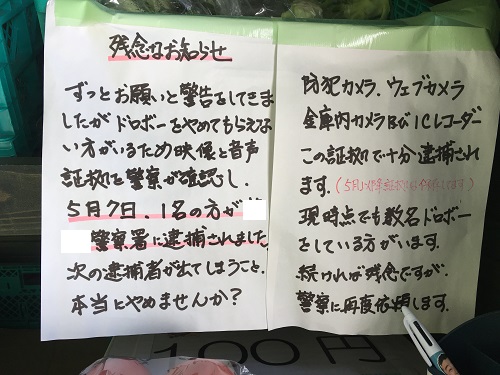 残念なお知らせ
ずっとお願いと警告をしてきま
したがドロボーをやめてもらえな
い方がいるため映像と音声
証拠を警察が確認し、
5月7日、1名の方が
警察署に逮捕されました
次の逮捕者が出てしまうこと、
本当にやめませんか?
防犯カメラ、ウェブカメラ
金庫内カメラ及びICレコーダー
この証拠で十分逮捕され
ます。
現時点でも数名ドロボー
をしている方がいます。
続ければ残念ですが、
警察に再度依頼します。
100円